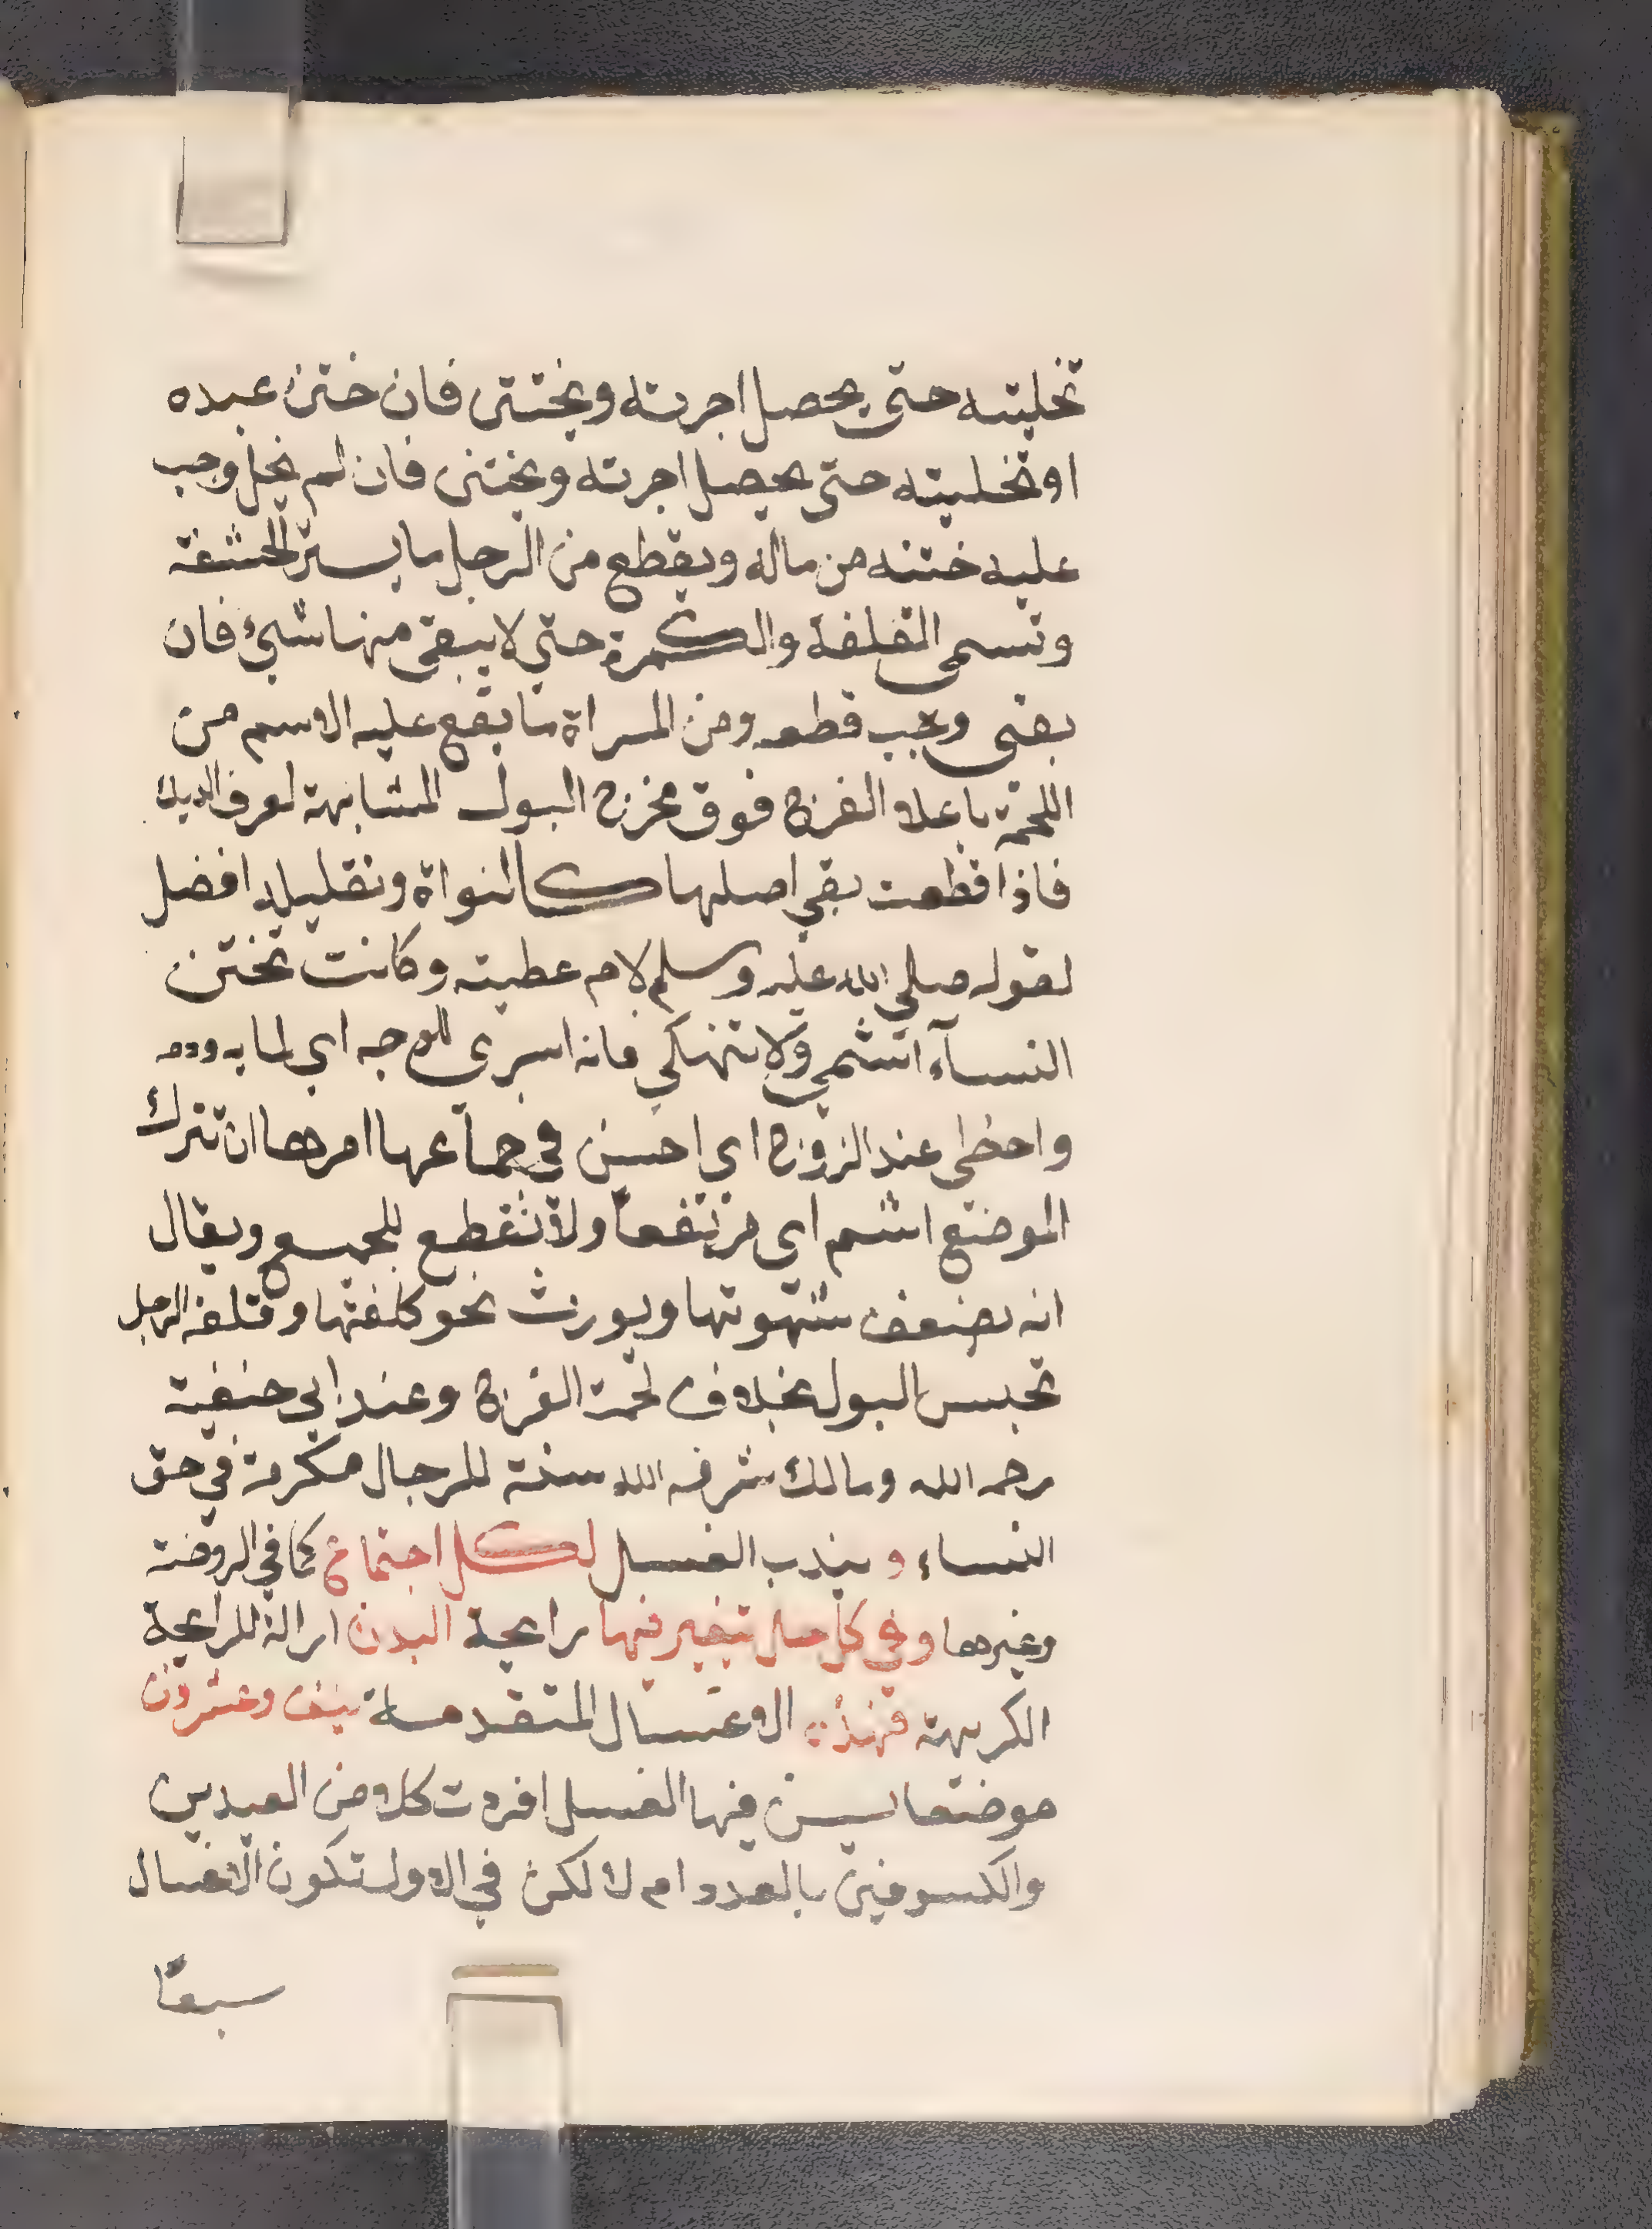 تخليته حتى يحصل اجرته ويختتن فان ختن عبده
او تخليته حتى يحصل اجرته ويختتن فان لم يخل وجب
عليه ختنه من ماله ويقطع من الرجل ما يستر الحشفة
وتسمى القلفة والكمرة حتي لا يبقى منها شيئ فان
بقى وجب قطعه ومن المراة ما يقع عليه الاسم من
اللحمة باعلا الفرج فوق مخرج البول المشابهة لعرف الديك
فاذا قطعت بقي اصلها كالنواة وتقليله افضل
لقوله صلي الله عليه وسلم لام عطيته وكانت تختن
النسآء اشمي ولا تنهكي فانه اسري للوجه اي لمايه ودمه
واحظى عند الزوج اي احسن في جماعها امرها ان تترك
الموضع اشم اي مرتفعا ولا تقطع للجميع ويقال
انه يضعف شهوتها ويورث نحو كلفتها وقلفه الرجل
تحبس البول بخلاف لحمة الفرج وعند ابي حنفية
رحمه الله ومالك شرفه الله سنة للرجال مكرمة في حق
النساء ويندب الغسل لكل اجتماع كما في الروضة
وغيرها وفي كل حال تتغير فيها رايحة البدن ازالة للرايحة
الكريهة فهذه الاغسال المتقدمة نيف وعشرون
موضعا يسن فيها الغسل افردت كلا من العيدين
والكسوفين بالعدد ام لا لكن في الاول تكون الاغسال
سبعًا